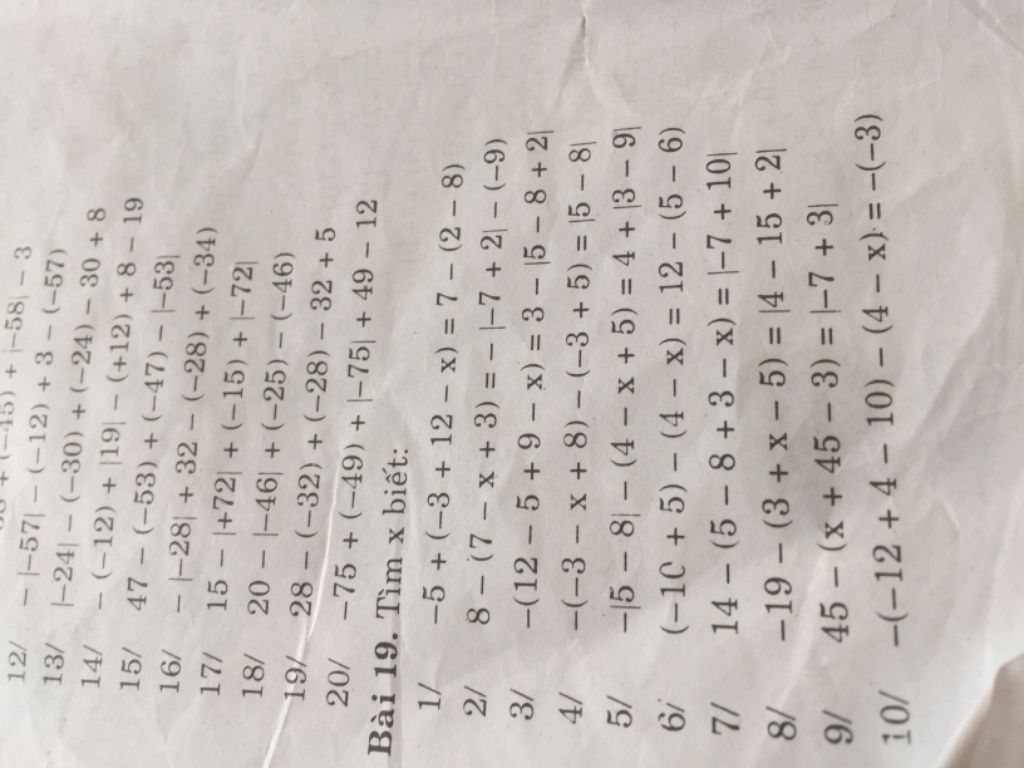 12/ − |−57| − (−12) + 3 − (−57)
13/ |−24| − (−30) + (−24) − 30 + 8
14/ − (−12) + |19| − (+12) + 8 − 19
15/ 47 − (−53) + (−47) − |−53|
16/ − |−28| + 32 − (−28) + (−34)
17/ 15 − |+72| + (−15) + |−72|
18/ 20 − |−46| + (−25) − (−46)
19/ 28 − (−32) + (−28) − 32 + 5
20/ −75 + (−49) + |−75| + 49 − 12
Bài 19. Tìm x biết:
1/ −5 + (−3 + 12 − x) = 7 − (2 − 8)
2/ 8 − (7 − x + 3) = − |−7 + 2| − (−9)
3/ −(12 − 5 + 9 − x) = 3 − |5 − 8 + 2|
4/ −(−3 − x + 8) − (−3 + 5) = |5 − 8|
5/ −|5 − 8| − (4 − x + 5) = 4 + |3 − 9|
6/ (−10 + 5) − (4 − x) = 12 − (5 − 6)
7/ 14 − (5 − 8 + 3 − x) = |−7 + 10|
8/ −19 − (3 + x − 5) = |4 − 15 + 2|
9/ 45 − (x + 45 − 3) = |−7 + 3|
10/ −(−12 + 4 − 10) − (4 − x) = −(−3)